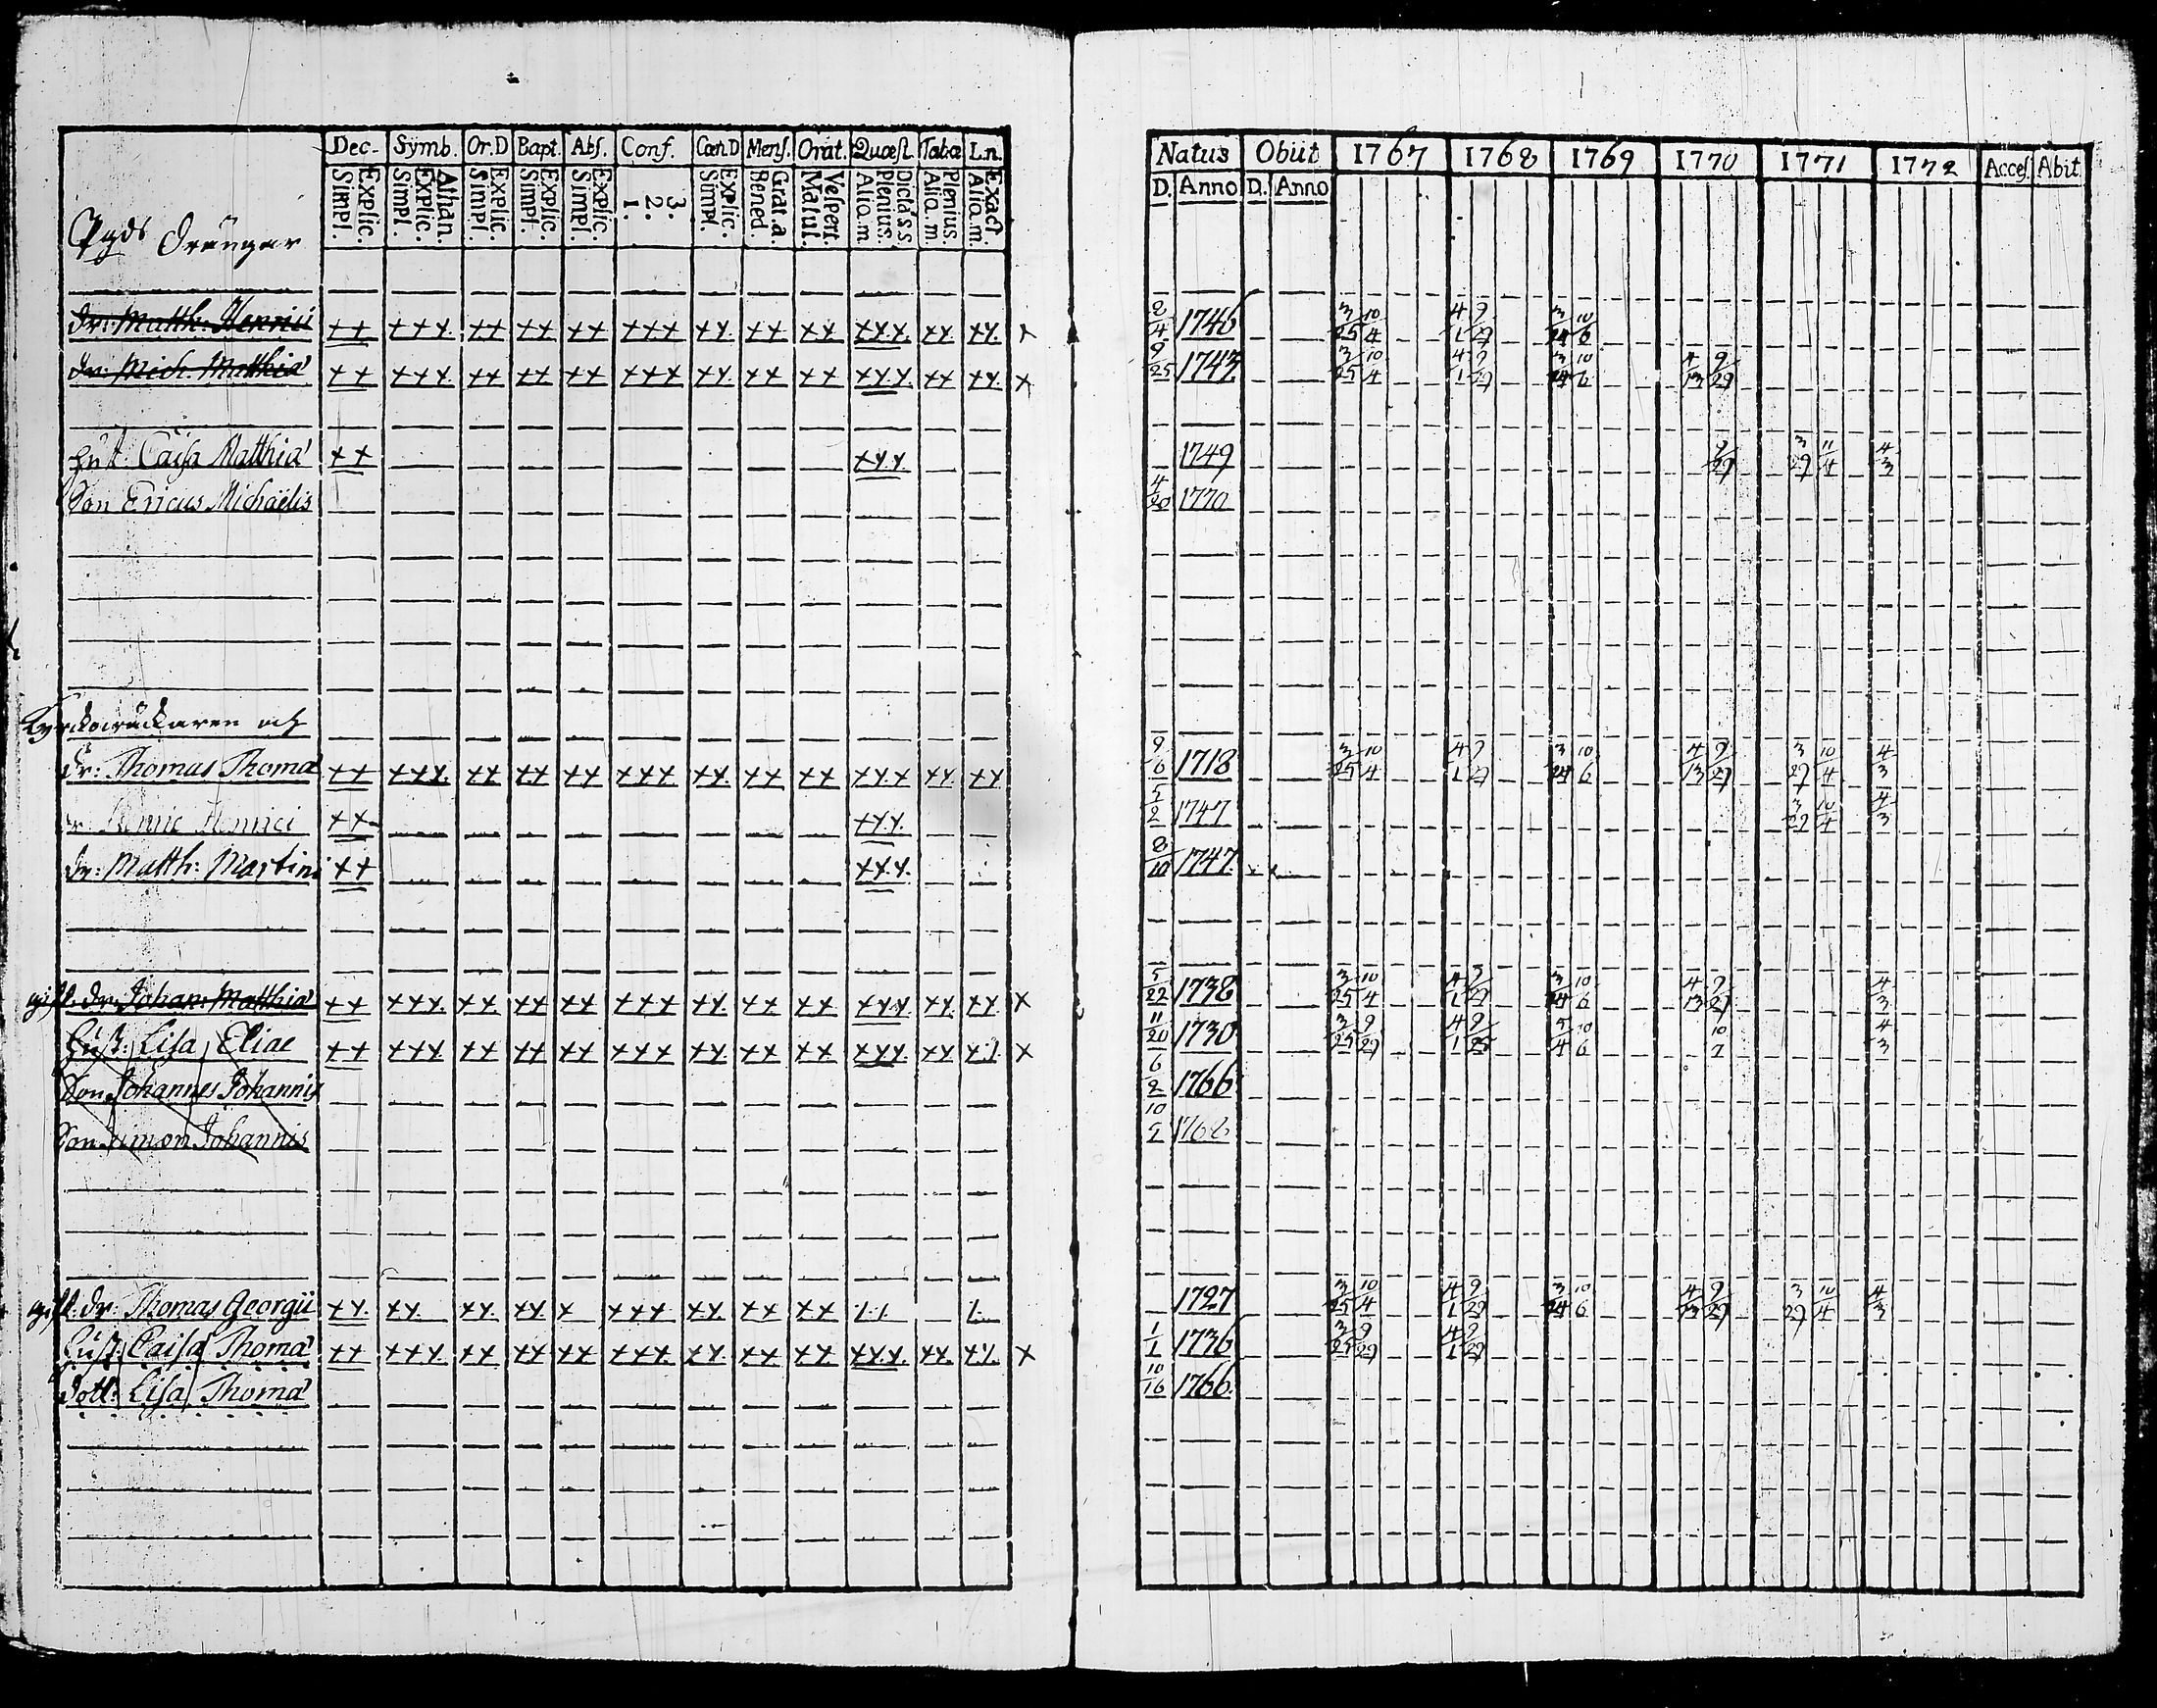 Dec. Symb. Or.D Bapt. Abs. Conf. Cœn.D Mens. Orat. Quæst. Tabæ L.n.
Simpl. Explic. Simpl. Explic. Athan. Simpl. Explic. Simpl. Explic. Simpl. Explic. 1. 2. 3. Simpl. Explic. Bened. Grat. a. Matut. Vespert. Alio. m. Plenius. Dicta s s. Alio. m. Plenius. Alia. m. Exact.
Drängar
Dr: Matth: Henrici ++ +++ ++ ++ ++ +++ ++ ++ ++ +++ ++ ++ +
Dr: Mich: Matthiæ ++ +++ ++ ++ ++ +++ ++ ++ ++ +++ ++ ++ +
Hust. Caisa Matthiæ ++ +++
Son Ericus Michaëlis
Kyrckowäcktaren och
Dr: Thomas Thomæ ++ +++ ++ ++ ++ +++ ++ ++ ++ +++ ++ ++
dr: Henric Henrici ++ +++
Dr: Matth: Martini ++ +++
gift. dr: Johan: Matthiæ ++ +++ ++ ++ ++ +++ ++ ++ ++ +++ ++ ++ +
Hust: Lisa Eliae ++ +++ ++ ++ ++ +++ ++ ++ ++ +++ ++ +
Son Johannes Johannis
Son Simon Johannis
gift. dr: Thomas Georgii ++ ++ ++ ++ + +++ ++ ++ ++
Hust: Caisa Thomæ ++ +++ ++ ++ ++ +++ ++ ++ ++ +++ ++ ++ +
Dott: Lisa Thomæ
Natus Obiit 1767 1768 1769 1770 1771 1772 Acces. Abit
D. Anno D. Anno
2/4 1746 3/25 10/4 4/1 9/29 3/24 10/6
9/25 1743 3/25 10/4 4/1 9/29 3/24 10/6 4/13 9/29
1749 9/29 3/29 11/4 4/3
4/20 1770
9/6 1718 3/25 10/4 4/1 9/29 3/24 10/6 4/13 9/29 3/29 10/4 4/3
5/2 1747 3/29 10/4 4/3
8/10 1747
5/22 1738 3/25 10/4 4/1 9/29 3/24 10/6 4/13 9/29 4/3
11/20 1730 3/25 9/29 4/1 9/25 10/6 10/7 4/3
6/2 1766
10/9 1768
1727 3/25 10/4 4/1 9/29 3/24 10/6 4/13 9/29 3/29 10/4 4/3
1/1 1736 3/25 9/29 4/1 9/29
10/16 1766